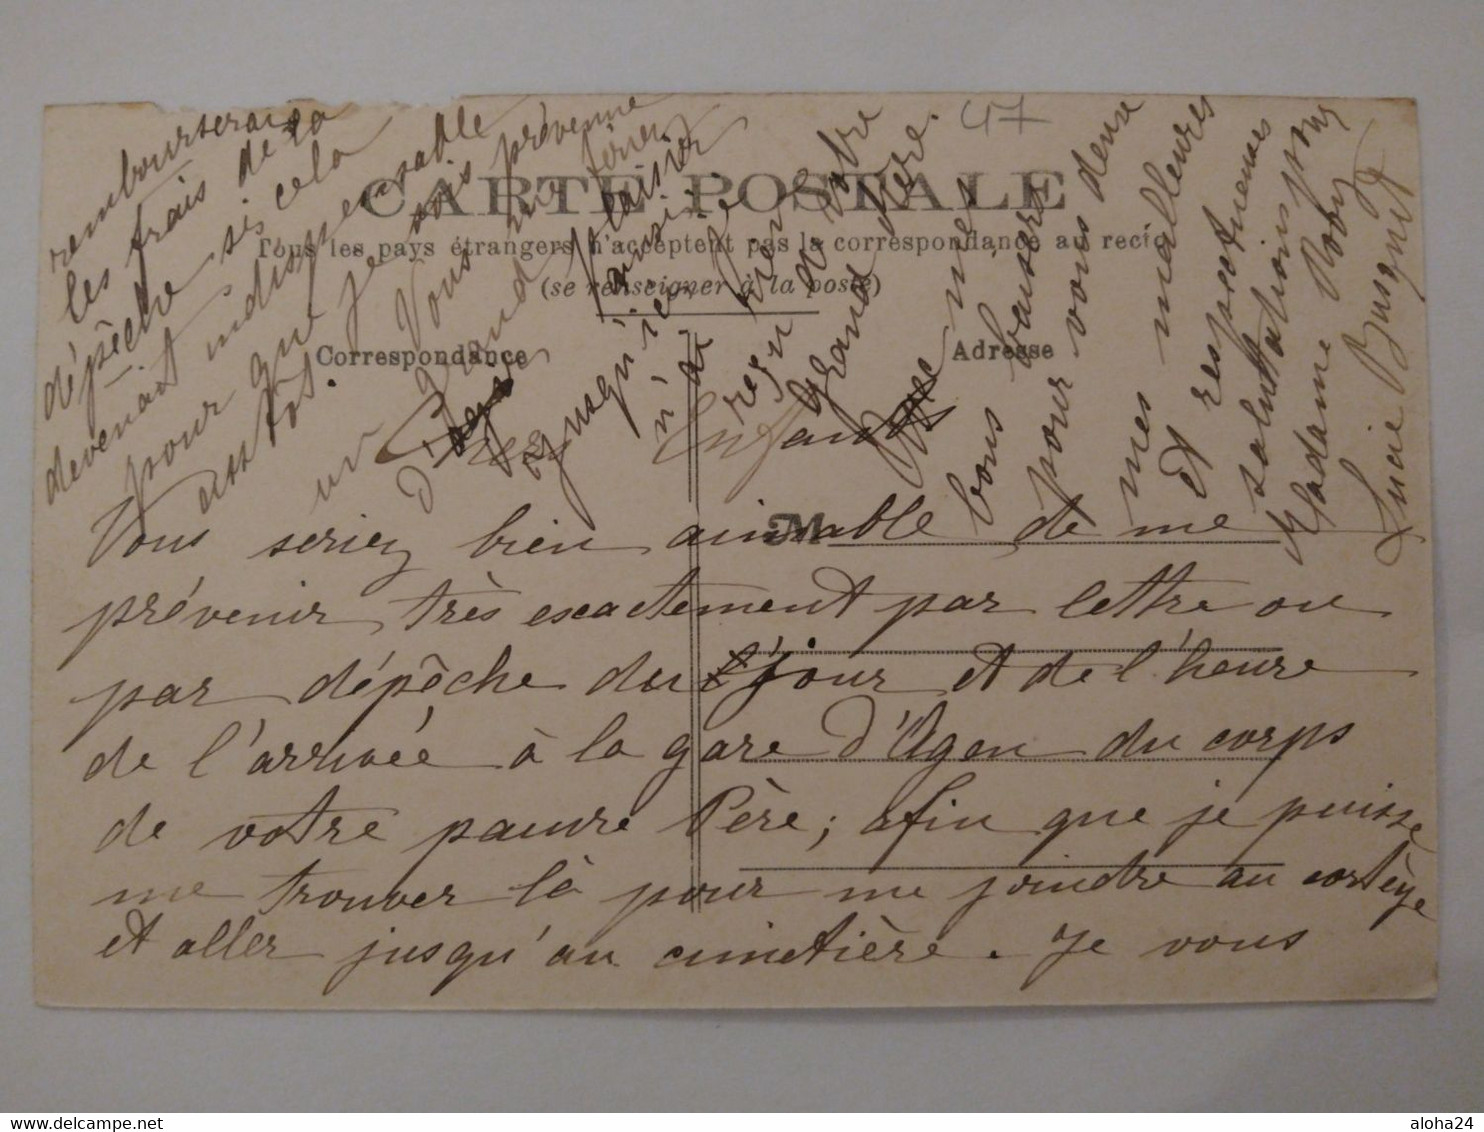 47
CARTE POSTALE
Tous les pays étrangers n'acceptent pas la correspondance au recto
(se renseigner à la poste)
Correspondance
Adresse
M
Chers Enfants
Vous seriez bien aimable de me
prévenir, très exactement par lettre ou
par dépêche du jour et de l'heure
de l'arrivée à la gare d'Agen du corps
de votre pauvre Père; afin que je puisse
me trouver là pour me joindre au cortège
et aller jusqu'au cimetière. Je vous
rembourserai
les frais de la
dépêche si cela
devenait indispensable
pour que je sois prévenue
assitot.
Vous me feriez
un grand plaisir
d'agir ainsi
jusqu'ici je
n'ai rien
reçu de votre
Grand Père.
mes
bons baisers
pour vous deux
mes meilleures
et respectueuses
salutations pour
Madame Roby
Lucie Busquet
aloha24